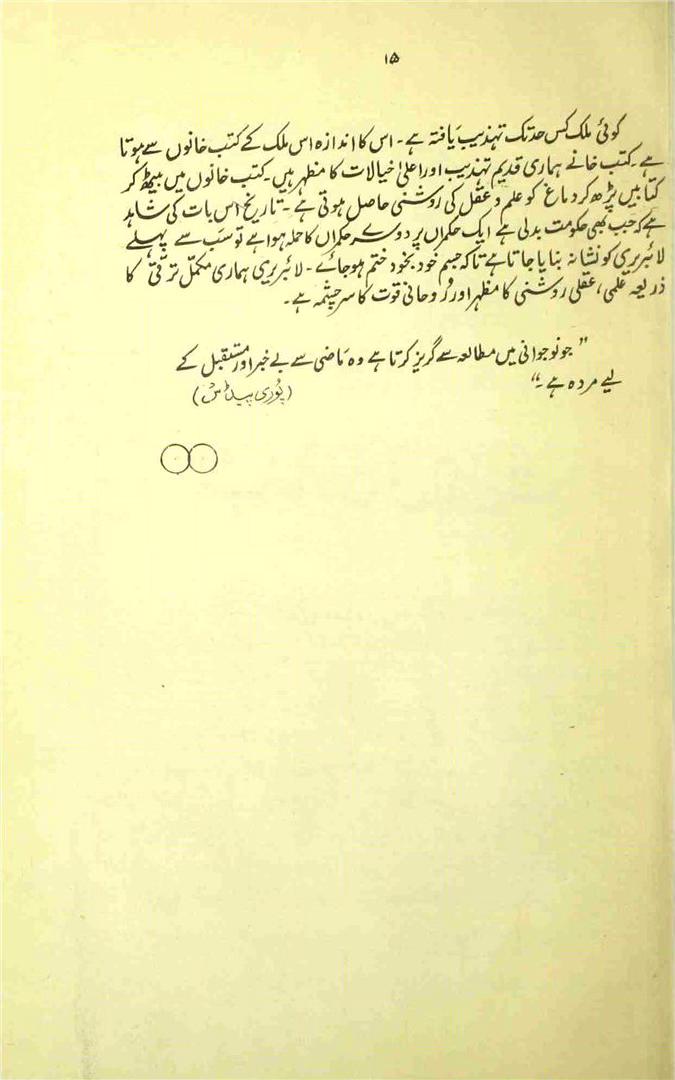 ۱۵
کوئی ملک کس حد تک تہذیب یافتہ ہے۔ اس کا اندازہ اس ملک کے کتب خانوں سے ہوتا
ہے۔ کتب خانے ہماری قدیم تہذیب اور اعلیٰ خیالات کا مظہر ہیں۔ کتب خانوں میں بیٹھ کر
کتابیں پڑھ کر دماغ کو علم و عقل کی روشنی حاصل ہوتی ہے۔ تاریخ اس بات کی شاہد
ہے کہ جب بھی حکومت بدلی ہے ایک حکمراں پر دوسرے حکمراں کا حملہ ہوا ہے تو سب سے پہلے
لائبریری کو نشانہ بنایا جاتا ہے تاکہ جسم خود بخود ختم ہو جائے۔ لائبریری ہماری مکمّل ترقّی کا
ذریعہ علمی، عقلی روشنی کا مظہر اور رُوحانی قوت کا سرچشمہ ہے۔
”جو نوجوانی میں مطالعہ سے گریز کرتا ہے وہ ماضی سے بے خبر اور مستقبل کے
لیے مردہ ہے۔“
(یُوری پیڈس)